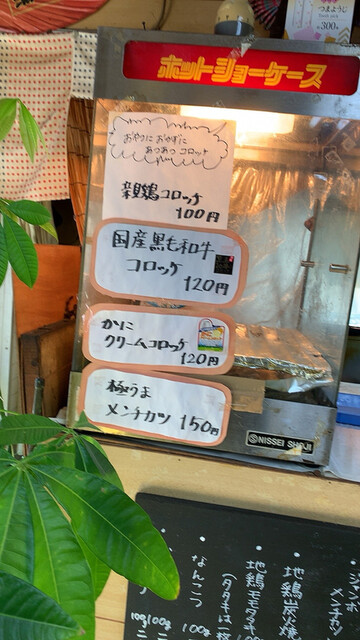 つまようじ
¥300
ホットショーケース
おやつに おかずに
あつあつ コロッケ
親鶏コロッケ
100円
国産黒毛和牛
コロッケ
120円
かに
クリームコロッケ
120円
極うま
メンチカツ 150円
NISSEI SHOJI
メンチカツ
・地鶏炭火焼
・地鶏モモタタキ
(タタキは
・なんこつ 100g
100g